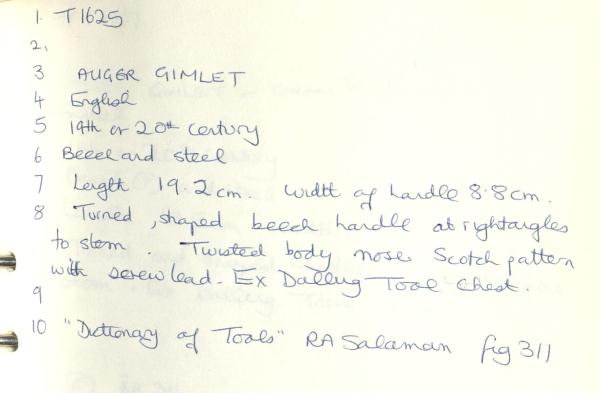 1. T1625
2.
3 AUGER GIMLET
4 English
5 19th or 20th century
6 Beech and steel
7 Length 19.2cm. Width of handle 8.8cm.
8 Turned, shaped beech handle at rightangles
to stem. Twisted body nose Scotch pattern
with screw lead. Ex Dalling Tool Chest.
9
10 "Dictionary of Tools" RA Salaman fig 311